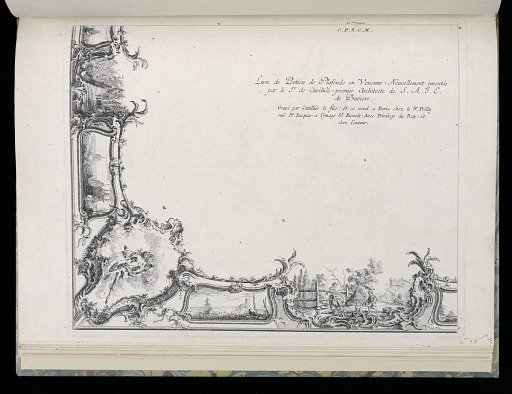 C.P.S.C.M.
Livre de Portion de Plafonds en Voussures Nouvellement inventés
par le Sr. de Cuvilliés premier Architecte de S. A. J. E.
de Baviere.
Gravé par Cuvilliés le fils et ce vend a Paris chez le Sr Poilly
rue St. Jacques a l'jmage St. Benoit Avec Privilege du Roy et
chez l'auteur.